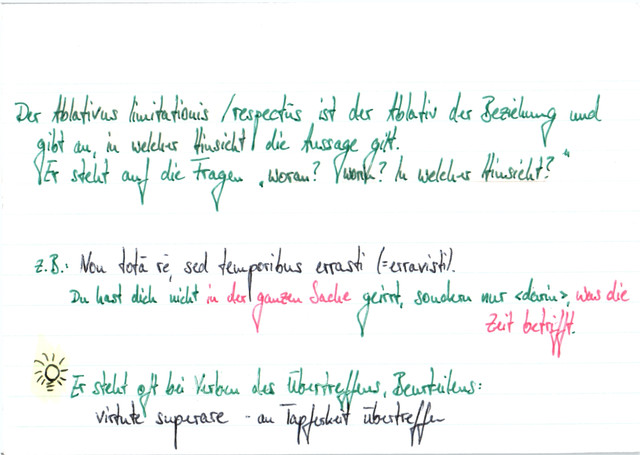 Der Ablativus limitationis / respectūs ist der Ablativ der Beziehung und
gibt an, in welcher Hinsicht die Aussage gilt.
Er steht auf die Fragen „woran? worin? In welcher Hinsicht?"
z.B.: Non totā rē, sed temporibus errasti (=erravisti).
Du hast dich nicht in der ganzen Sache geirrt, sondern nur <darin>, was die
Zeit betrifft.
Er steht oft bei Verben des Übertreffens, Beurteilens:
virtute superare - an Tapferkeit übertreffen